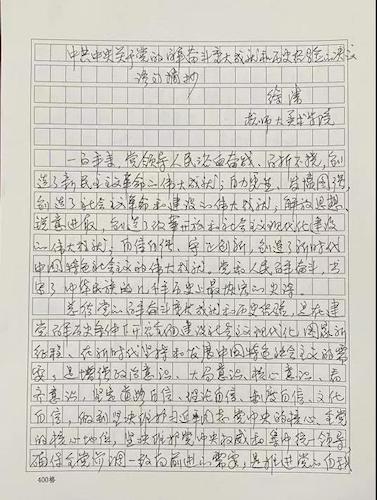 中共中央关于党的百年奋斗重大成就和历史经验的决议
语句摘抄
徐
师大美术学院
一百年来，党领导人民浴血奋战、百折不挠，创
造了新民主主义革命的伟大成就；自力更生、发愤图强，
创造了社会主义革命和建设的伟大成就；解放思想、
锐意进取，创造了改革开放和社会主义现代化建设
的伟大成就；自信自强、守正创新，创造了新时代
中国特色社会主义的伟大成就。党和人民百年奋斗，书
写了中华民族几千年历史上最恢宏的史诗。
总结党的百年奋斗重大成就和历史经验，是在建
党百年历史条件下开启全面建设社会主义现代化国家新
征程、在新时代坚持和发展中国特色社会主义的需
要；是增强政治意识、大局意识、核心意识、看
齐意识，坚定道路自信、理论自信、制度自信、文化
自信，做到坚决维护习近平同志党中央的核心、全党
的核心地位，坚决维护党中央权威和集中统一领导，
确保全党步调一致向前进的需要；是推进党的自我
400格